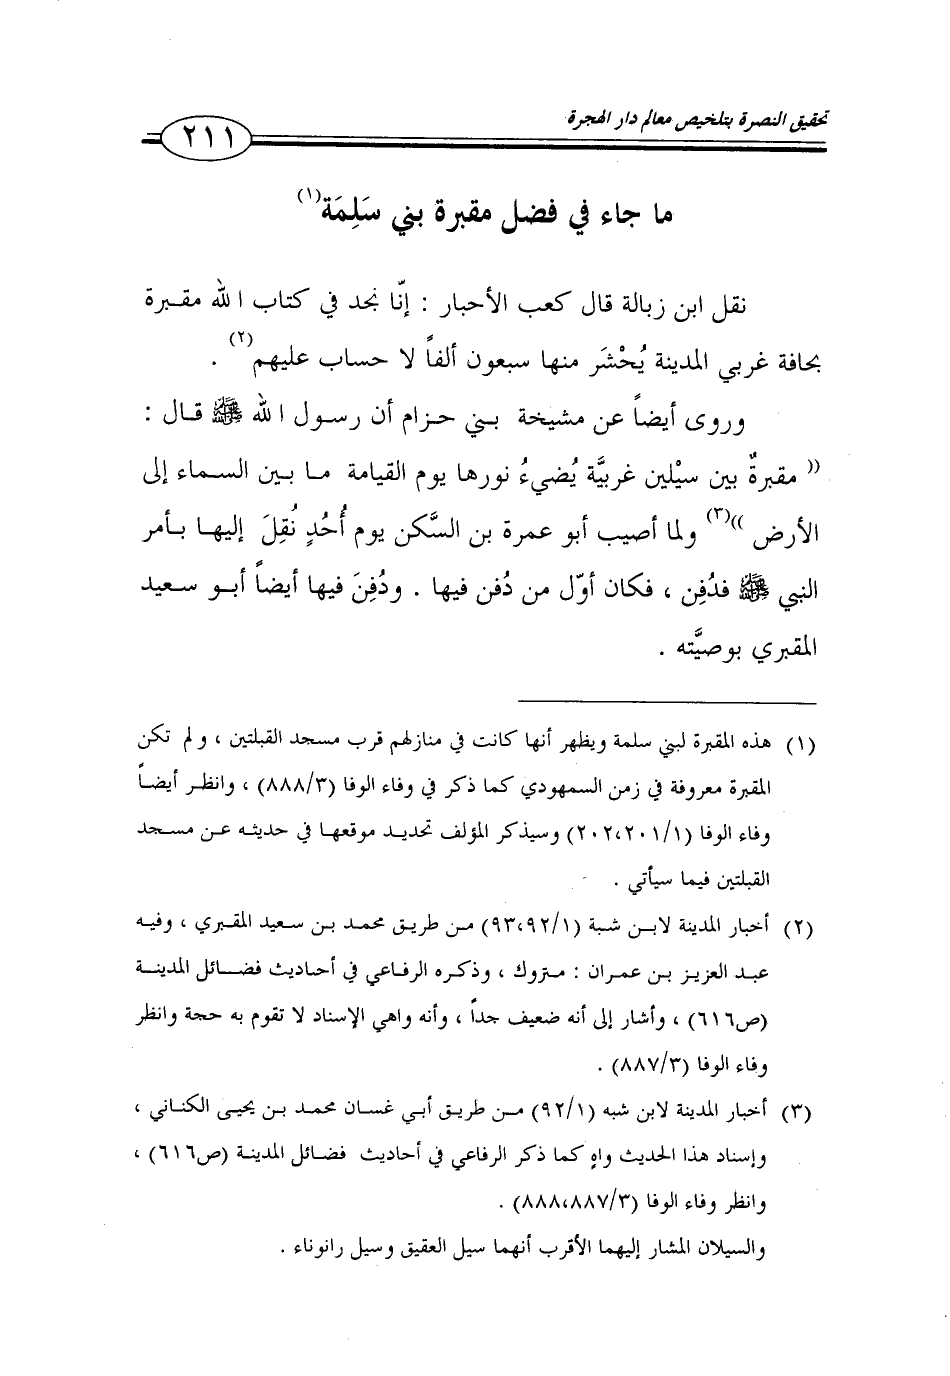 تحقيق النصرة بتلخيص معالم دار الهجرة
٢١١
ما جاء في فضل مقبرة بني سَلِمَة(١)
نقل ابن زبالة قال كعب الأحبار : إنّا نجد في كتاب الله مقبرة
بحافة غربي المدينة يُحْشَر منها سبعون ألفاً لا حساب عليهم(٢) .
وروى أيضاً عن مشيخة بني حزام أن رسول الله ﷺ قال :
(( مقبرةٌ بين سيْلين غربيَّة يُضيءُ نورها يوم القيامة ما بين السماء إلى
الأرض ))(٣) ولما أصيب أبو عمرة بن السَّكن يوم أُحُدٍ نُقِلَ إليها بأمر
النبي ﷺ فدُفِن ، فكان أوّل من دُفن فيها . ودُفِنَ فيها أيضاً أبو سعيد
المقبري بوصيَّته .
(١) هذه المقبرة لبني سلمة ويظهر أنها كانت في منازلهم قرب مسجد القبلتين ، ولم تكن
المقبرة معروفة في زمن السمهودي كما ذكر في وفاء الوفا (٨٨٨/٣) ، وانظر أيضاً
وفاء الوفا (٢٠٢،٢٠١/١) وسيذكر المؤلف تحديد موقعها في حديثه عن مسجد
القبلتين فيما سيأتي .
(٢) أخبار المدينة لابن شبة (٩٣،٩٢/١) من طريق محمد بن سعيد المقبري ، وفيه
عبد العزيز بن عمران : متروك ، وذكره الرفاعي في أحاديث فضائل المدينة
(ص٦١٦) ، وأشار إلى أنه ضعيف جداً ، وأنه واهي الإسناد لا تقوم به حجة وانظر
وفاء الوفا (٨٨٧/٣) .
(٣) أخبار المدينة لابن شبه (٩٢/١) من طريق أبي غسان محمد بن يحيى الكناني ،
وإسناد هذا الحديث واهٍ كما ذكر الرفاعي في أحاديث فضائل المدينة (ص٦١٦) ،
وانظر وفاء الوفا (٨٨٨،٨٨٧/٣) .
والسيلان المشار إليهما الأقرب أنهما سيل العقيق وسيل رانوناء .